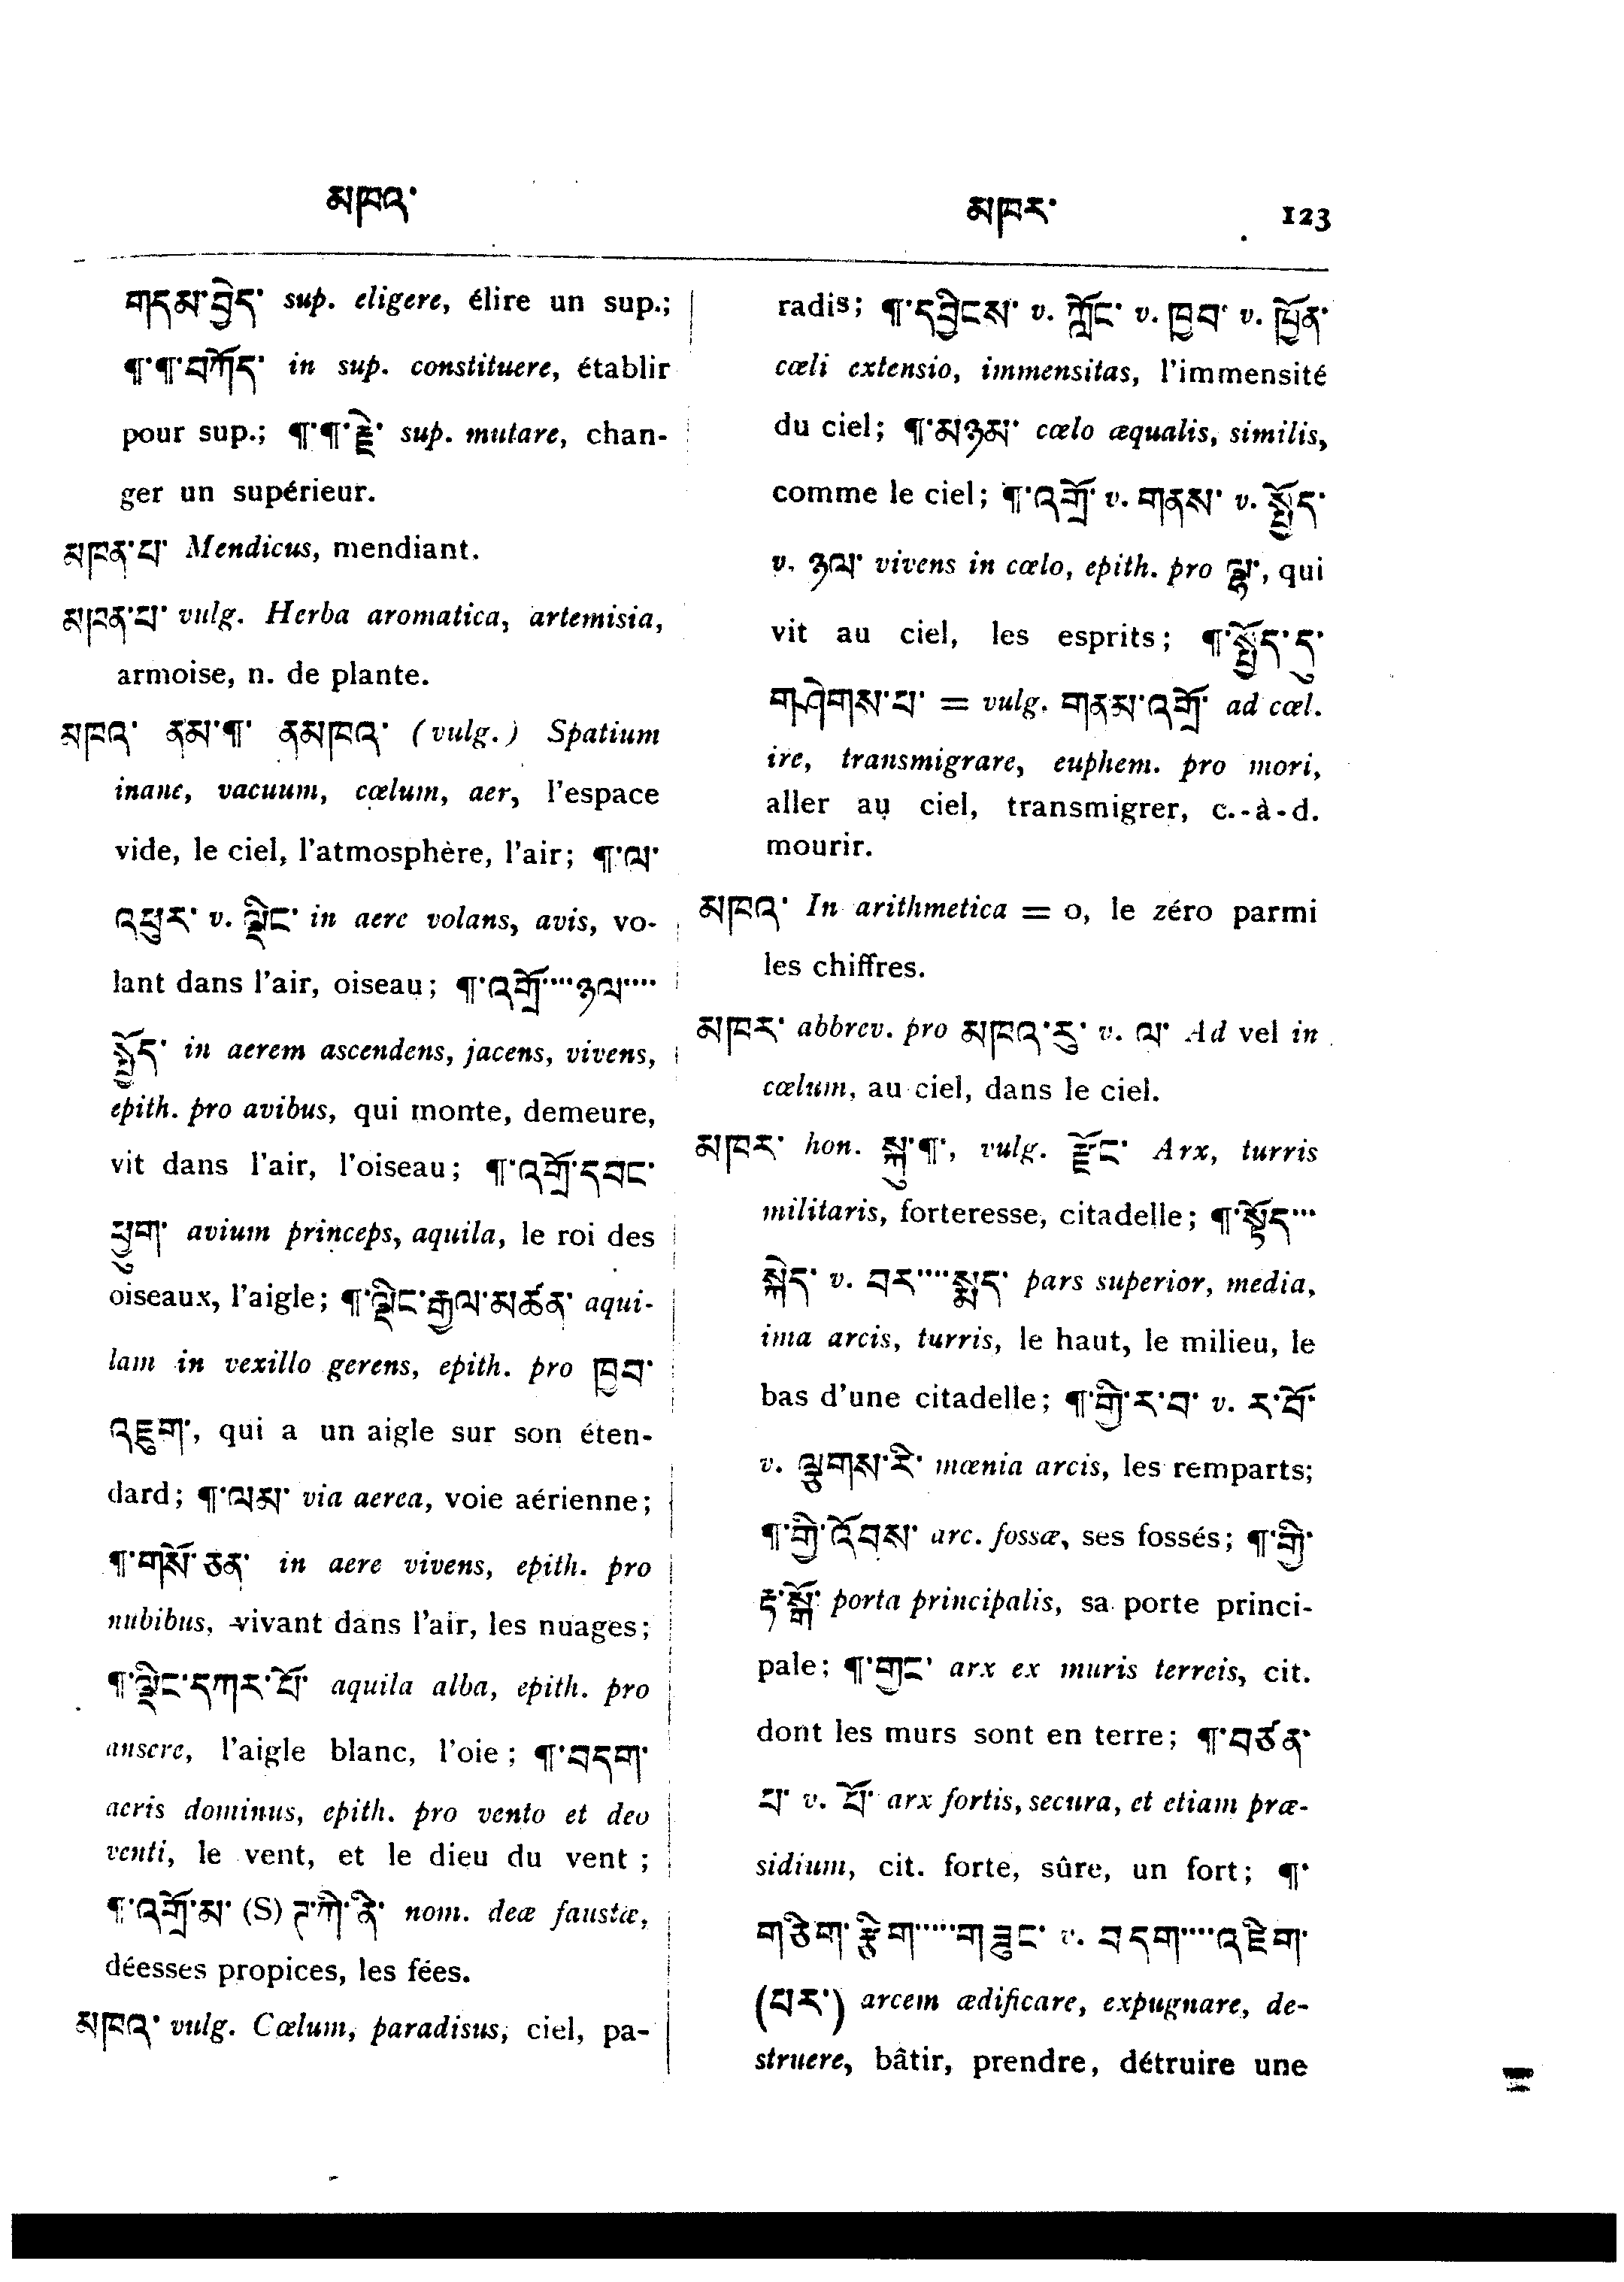 མཁའ་
མཁར་ 123
གདམ་བྱེད་ sup. eligere, élire un sup.;
¶་¶་བཀོད་ in sup. constituere, établir
pour sup.; ¶་¶་རྗེ་ sup. mutare, chan-
ger un supérieur.
མཁན་པ་ Mendicus, mendiant.
མཁན་པ་ vulg. Herba aromatica, artemisia,
armoise, n. de plante.
མཁའ་ ནམ་¶་ ནམཁའ་ (vulg.) Spatium
inane, vacuum, cœlum, aer, l'espace
vide, le ciel, l'atmosphère, l'air; ¶་ལ་
འཕུར་ v. ལྡིང་ in aere volans, avis, vo-
lant dans l'air, oiseau; ¶་འགྲོ་...ཉལ་...
སྤྱོད་ in aerem ascendens, jacens, vivens,
epith. pro avibus, qui monte, demeure,
vit dans l'air, l'oiseau; ¶་འགྲོ་དབང་
ཕྱུག་ avium princeps, aquila, le roi des
oiseaux, l'aigle; ¶་ལྡིང་རྒྱལ་མཚན་ aqui-
lam in vexillo gerens, epith. pro ཁྱབ་
འཇུག་, qui a un aigle sur son éten-
dard; ¶་ལམ་ via aerea, voie aérienne;
¶་གསོ་ཅན་ in aere vivens, epith. pro
nubibus, vivant dans l'air, les nuages;
¶་ལྡིང་དཀར་པོ་ aquila alba, epith. pro
ansere, l'aigle blanc, l'oie; ¶་བདག་
aeris dominus, epith. pro vento et deo
venti, le vent, et le dieu du vent;
¶་འགྲོ་མ་ (S) ཌ་ཀི་ནི་ nom. deæ faustæ,
déesses propices, les fées.
མཁའ་ vulg. Cœlum, paradisus, ciel, pa-
radis; ¶་དབྱིངས་ v. ཀློང་ v. ཁྱབ་ v. ཁྱོན་
cœli extensio, immensitas, l'immensité
du ciel; ¶་མཉམ་ cœlo æqualis, similis,
comme le ciel; ¶་འགྲོ་ v. གནས་ v. སྤྱོད་
v. ཉལ་ vivens in cœlo, epith. pro ལྷ་, qui
vit au ciel, les esprits; ¶་སྤྱོད་དུ་
གཤེགས་པ་ = vulg. གནམ་འགྲོ་ ad cœl.
ire, transmigrare, euphem. pro mori,
aller au ciel, transmigrer, c.-à-d.
mourir.
མཁའ་ In arithmetica = 0, le zéro parmi
les chiffres.
མཁར་ abbrev. pro མཁའ་རུ་ v. ལ་ Ad vel in
cœlum, au ciel, dans le ciel.
མཁར་ hon. སྐུ་¶་, vulg. རྫོང་ Arx, turris
militaris, forteresse, citadelle; ¶་སྟོད་...
སྐེད་ v. བར་...སྨད་ pars superior, media,
ima arcis, turris, le haut, le milieu, le
bas d'une citadelle; ¶་གྱི་ར་བ་ v. ར་བོ་
v. ལྕགས་རི་ mœnia arcis, les remparts;
¶་གྱི་འོབས་ arc. fossæ, ses fossés; ¶་གྱི་
རྟ་སྒོ་ porta principalis, sa porte princi-
pale; ¶་གྱང་ arx ex muris terreis, cit.
dont les murs sont en terre; ¶་བཙན་
པ་ v. པོ་ arx fortis, secura, et etiam præ-
sidium, cit. forte, sûre, un fort; ¶་
གཅིག་རྩིག་....གཟུང་ v. བདག་....འཇིག་
(པར་) arcem ædificare, expugnare, de-
struere, bâtir, prendre, détruire une